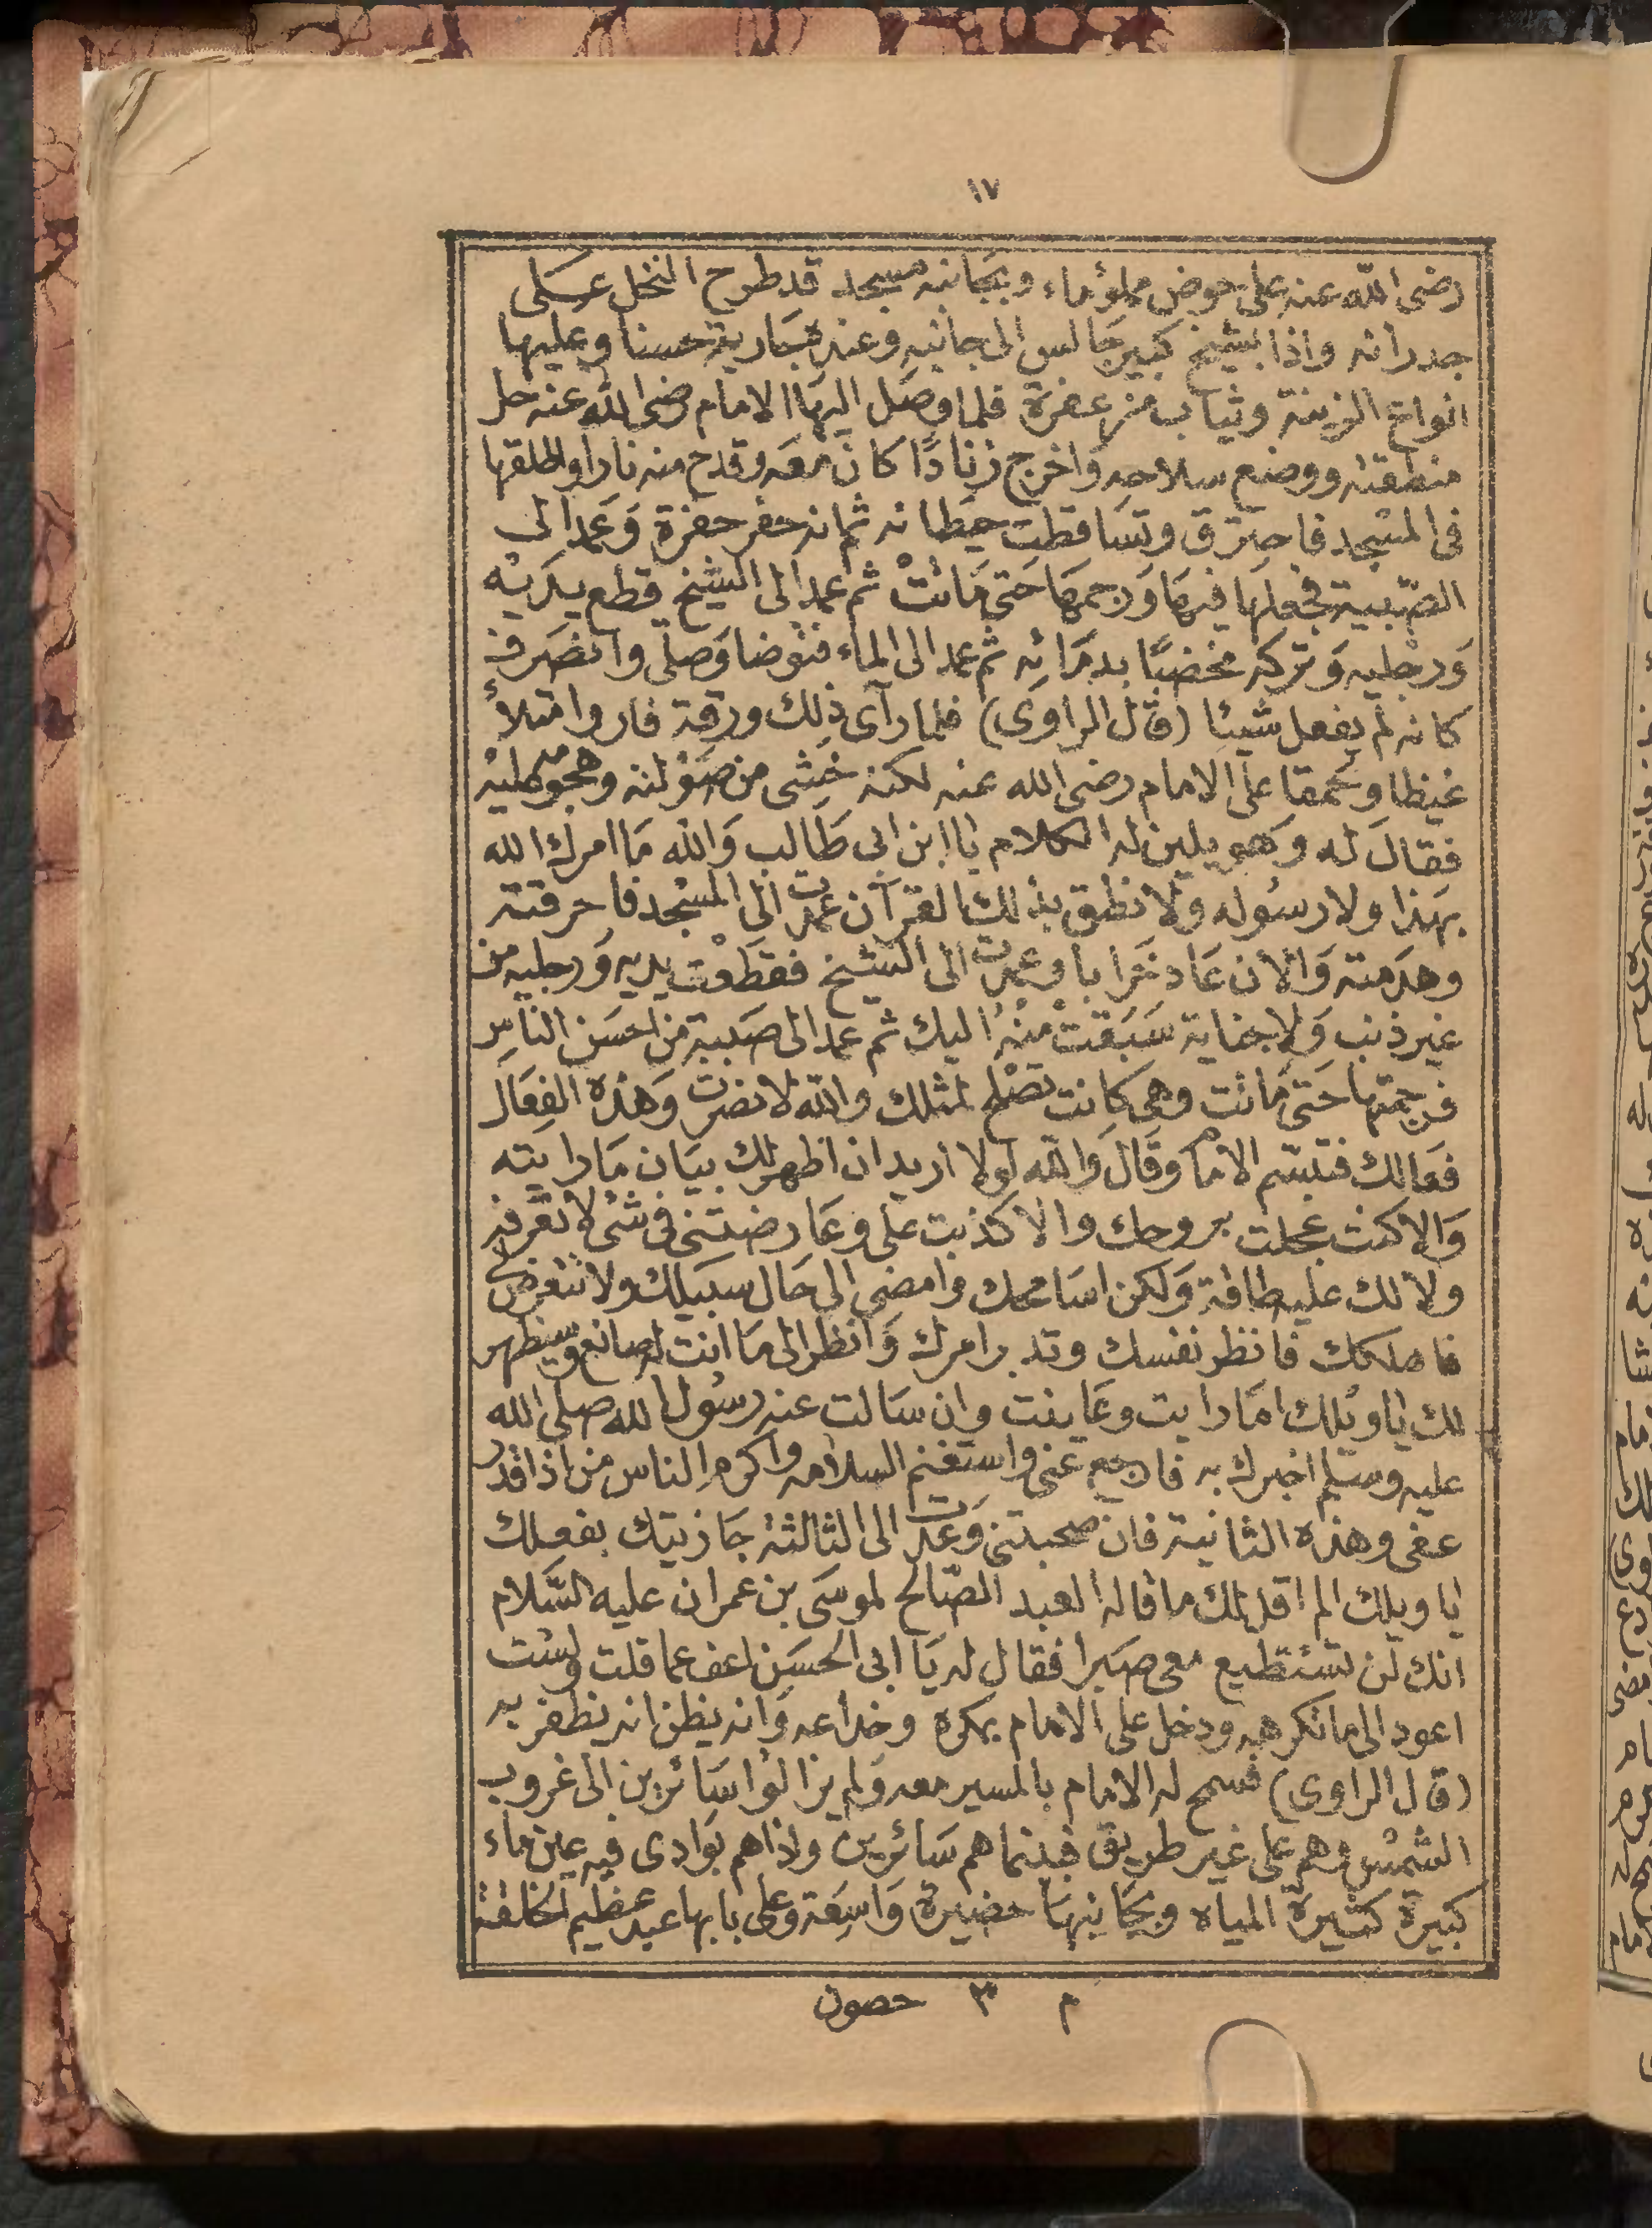 ١٧
رضى الله عنه على حوض مملوء ماء وبجانبه مسجد قد طرح النخل عسلى
جدرانه واذا بشيخ كبير جالس الى جانبه وعنده جارية حسنا وعليها
انواع الزينة وثياب مزعفرة فلما وصل اليها الامام رضى الله عنه حل
منطقته ووضع سلاحه واخرج زنادًا كان معه وقدح منه نارا واطلقها
فى المسجد فاحترق وتساقطت حيطانه ثم انه حفر حفرة وَعمد الى
الصّبية فجعلها فيهَا وَرجمهَا حَتى مَاتتْ ثم عمد الى الشيخ قطع يدَيْه
وَرجْليه وَتركه مخضبًا بدمَائه ثم عمد الى الماء فتوضا وَصلّى وانصَرف
كانه لم يفعل شيئا (قال الراوى) فلما رآى ذلك ورقة فار وامتلأ
غيظا وحمقا على الامام رضى الله عنه لكنه خَشى من صَوْلته وهجومه عليْه
فقالَ له وَهو يلين له الكلام يا ابن ابى طَالب وَالله مَا امرك الله
بهَذا ولا رسُوله ولا نطق بذلك القرآن عمدت الى المسْجد فاحرقته
وهدَمته وَالآن عَاد خَرابا وعمدت الى الشيخ فقطَعْت يديه وَرجليه من
غير ذنب وَلا جناية سَبَقتْ مِنْهُ اليك ثم عمد الى صَبية من احسَن الناسِ
فرجمتها حَتى مَاتت وهى كانت تصْلح لمثلك والله لا نصرت وَهذه الفِعَال
فعَالك فتبسّم الامام وقَالَ وَالله لَولا اريد ان اظهر لك بيَان مَا رايته
وَالا كنت عجلت بروحك والا كذبت على وعَارضتنى فى شئ لا تعرفه
ولا لك عليه طاقة وَلكن اسَامحك وامضى الى حَال سبيلك ولا تتعرض لى
فاهلكك فانظر نفسك وتدبر امرك وَانظر الى مَا انت له صانع وسيظهر
لك يا ويْلك امَا رايت وعَاينت وان سَالت عنه رسُول الله صلى الله
عليه وسَلم اخبرك به فارجع عنى واستغنم السلامه واكرم الناس من اذا قدر
عفى وهذه الثانية فان صحبتنى وَعدت الى الثالثة جَازيتك بفعلك
يا ويلك الم اقل لك ما قاله العبد الصّالح لموسَى بن عمران عليه السَّلام
انك لن تستطيع معى صبرا فقال له يَا ابى الحسَن اعف عما قلت ولسْت
اعود الى ما تكرهه ودخل على الامام بمكره وخداعه وَانه يظن انه يظفر به
(قال الراوى) فسمح له الامام بالمسير معه وَلم يزالوا سَائرين الى غروب
الشمْس وهم على غير طريق فبينما هم سَائرين واذا هم بوَادى فيه عين ماء
كبيرة كثيرة المياه وبجَانبهَا حضيرة وَاسِعَة وَعلى بابها عبد عظيم الخلقة
م ٣ حصون